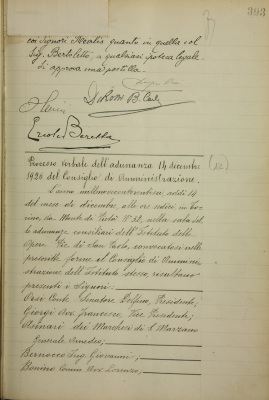 393
coi Signori Nealis, quanto in quella col
Sig. Bertoletto, a qualsiasi ipoteca legale.
Si approva una postilla.
Ercole Beretta
Processo verbale dell'adunanza 14 dicembre
1926 del Consiglio di Amministrazione.
L'anno millenovecentoventisei, addì 14
del mese di dicembre, alle ore sedici in To-
rino, via Monte di Pietà N° 32, nella sala del-
le adunanze consiliari dell'Istituto delle
Opere Pie di San Paolo, convocatosi nelle
prescritte forme il Consiglio di Ammini-
strazione dell'Istituto stesso, risultano
presenti i Signori:
Orsi Conte Senatore Delfino, Presidente;
Giorgi Avv. Francesco, Vice Presidente;
Asinari dei Marchesi di S. Marzano
Generale Amedeo;
Bernocco Ing. Giovanni;
Bonino Comm. Avv. Lorenzo;